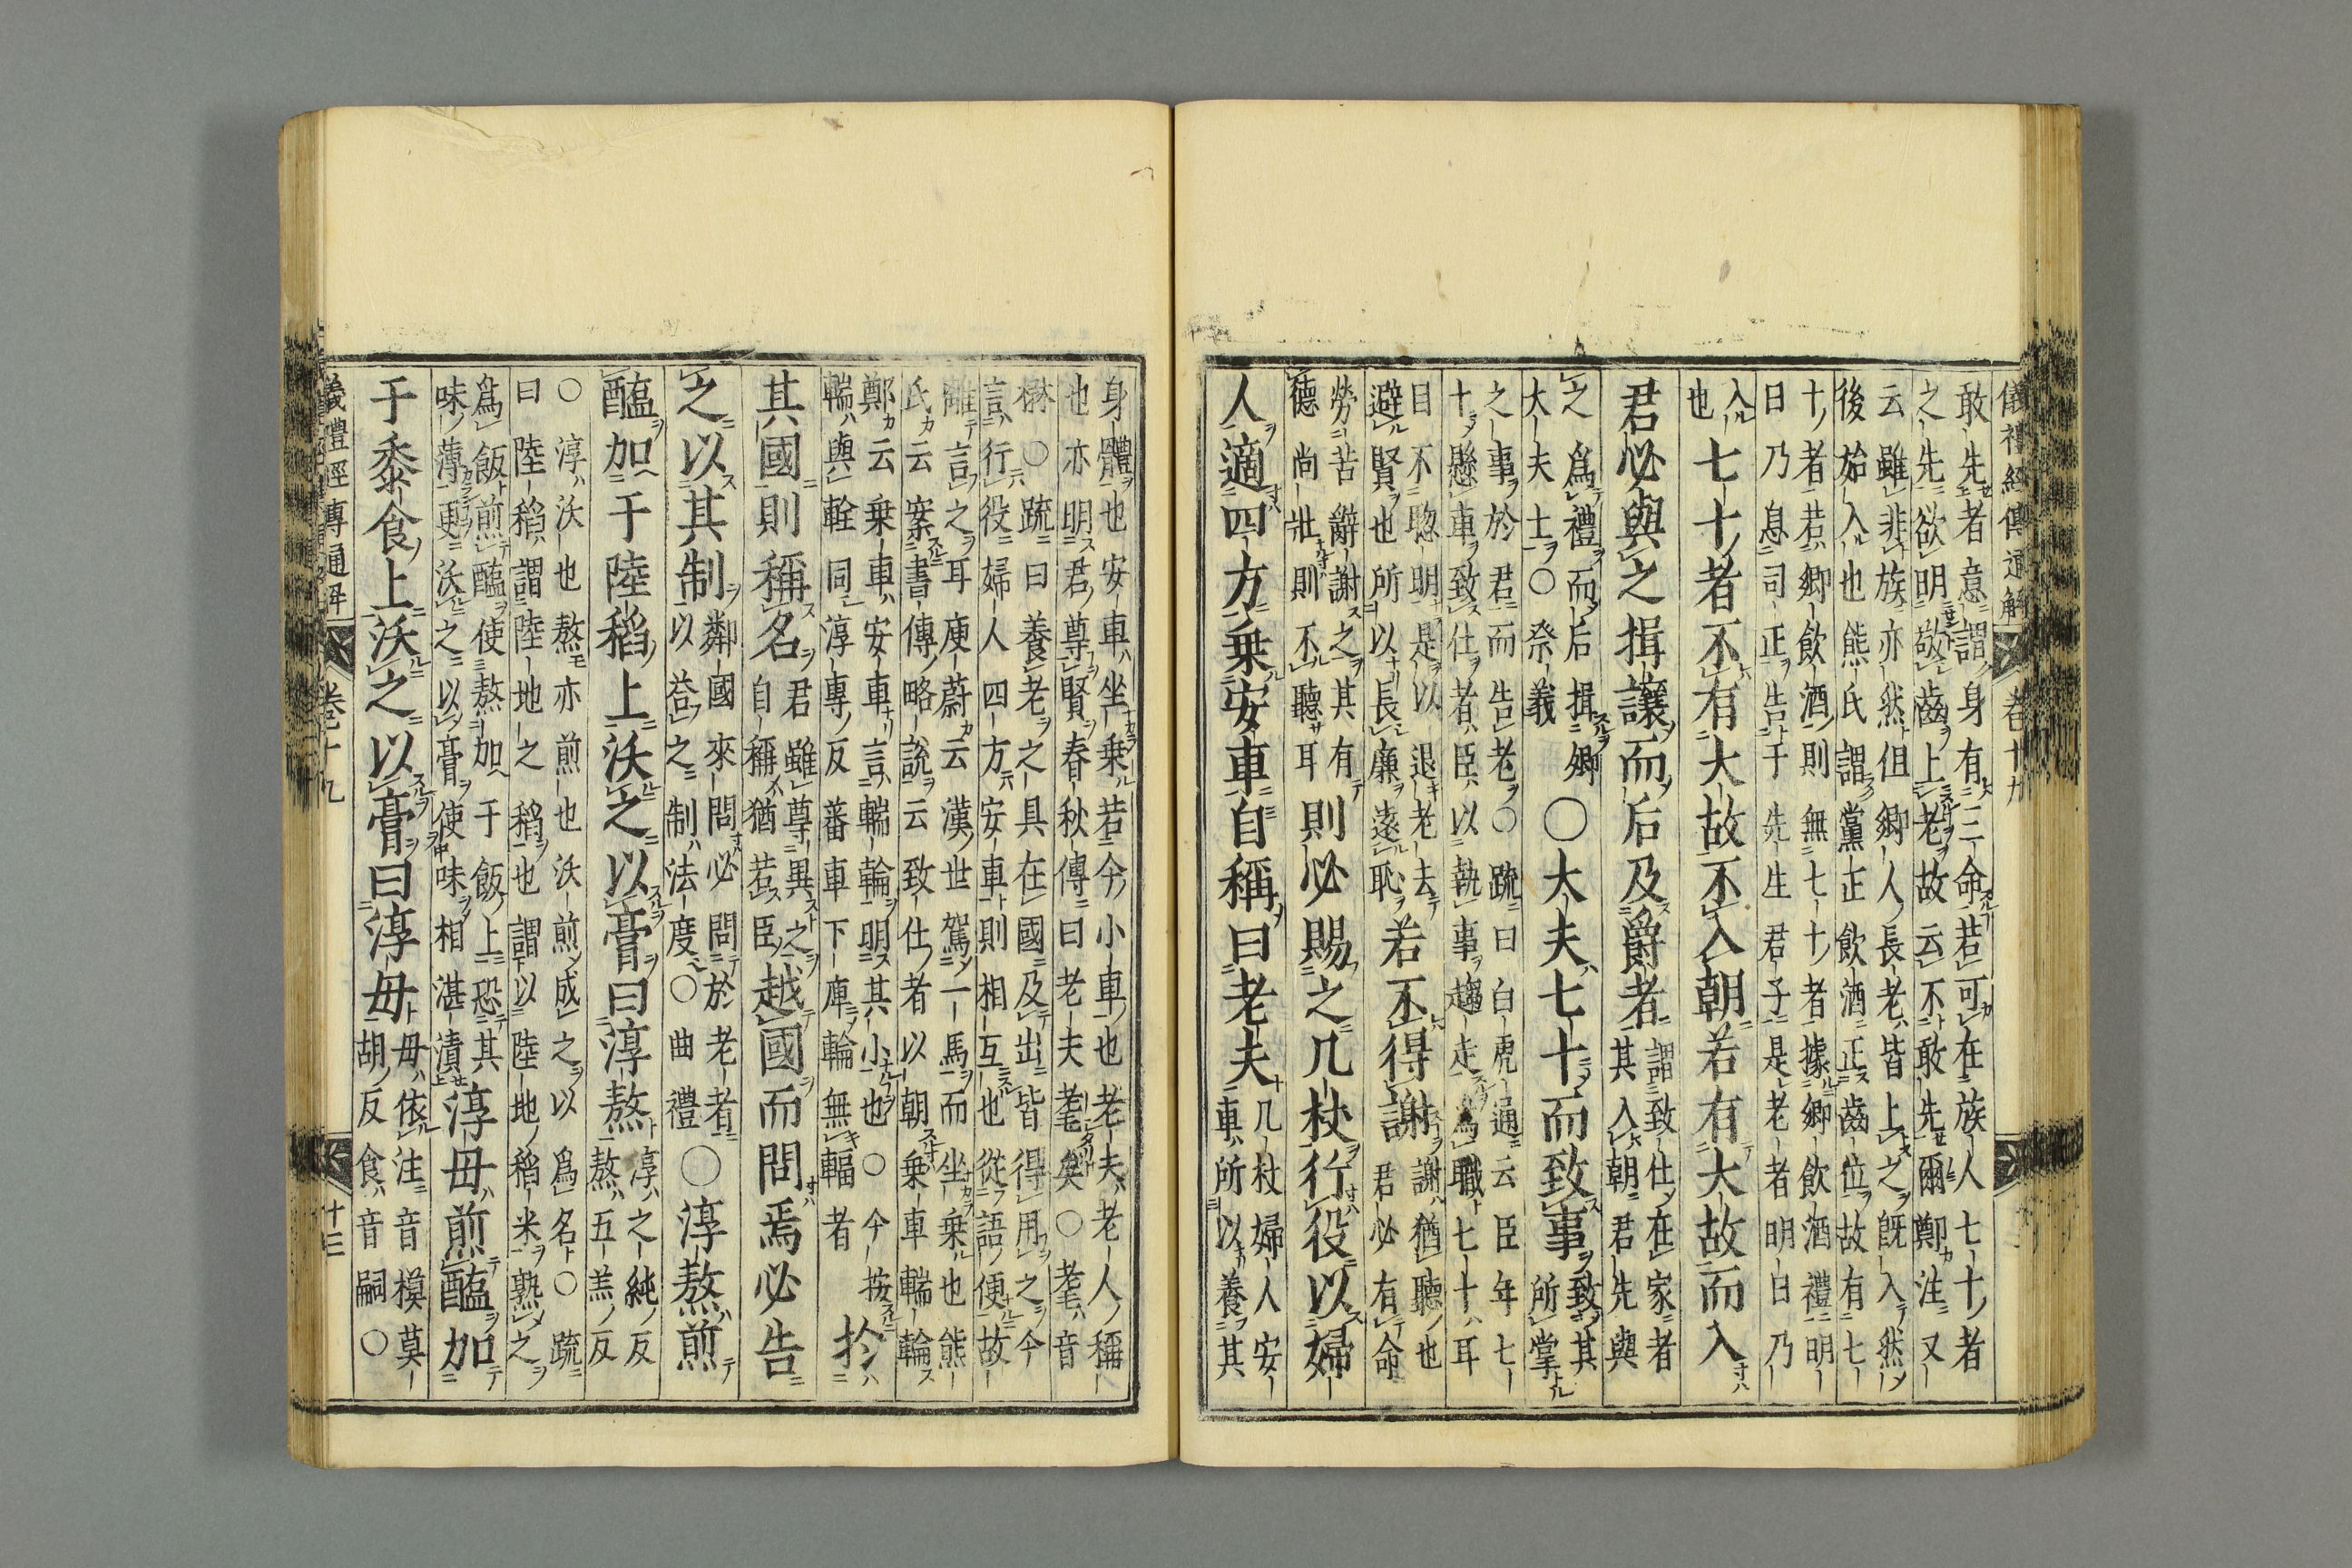 儀禮經傳通解
卷十九
敢先者意謂身有三命若可在族人七十者
之先欲明敬齒上老故云不敢先爾鄭注又
云雖非族亦然但鄉人長老皆上之既入然
後始入也熊氏謂黨正飲酒正齒位故有七
十者若鄉飲酒則無七十者據鄉飲酒禮明
日乃息司正告于先生君子是老者明日乃
入
也
七十者不有大故不入朝若有大故而入
君必與之揖讓而后及爵者
謂致仕在家者
其入朝君先與
之爲禮而后揖卿
大夫士○祭義
○大夫七十而致事
致其所掌
之事於君而告老○疏曰白虎通云臣年七
十懸車致仕者臣以執事趨走爲職七十耳
目不聦明是以退老去
避賢也所以長廉遠恥
若不得謝
謝猶聽也
君必有命
勞苦辭謝之其有
德尚壯則不聽耳
則必賜之几杖行役以婦
人適四方乗安車自稱曰老夫
几杖婦人安
車所以養其
身體也安車坐乗若今小車也老夫老人稱
也亦明君尊賢春秋傳曰老夫耄矣○耄音
○疏曰養老之具在國及出皆得用之今
言行役婦人四方安車則相互也從語便故
離言之耳庾蔚云漢世駕一馬而坐乗也熊
氏云案書傳略說云致仕者以朝乗車輲輪
鄭云乗車安車言輲輪明其小也○今按
輲與輇同淳專反蕃車下庳輪無輻者
於
其國則稱名
君雖尊異之
自稱猶若臣
越國而問焉必告
之以其制
鄰國來問必問於老者
以荅之制法度○曲禮
○淳熬煎
醢加于陸稻上沃之以膏曰淳熬
淳之純反
熬五羔反
○淳沃也熬亦煎也沃煎成之以爲名○疏
曰陸稻謂陸地之稻也謂以陸地稻米熟之
爲飯煎醢使熬加于飯上恐其
味薄更沃之以膏使味相湛漬
淳毋煎醢加
于黍食上沃之以膏曰淳毋
毋依注音模莫
胡反食音嗣○
儀禮經傳通解
卷十九
十三